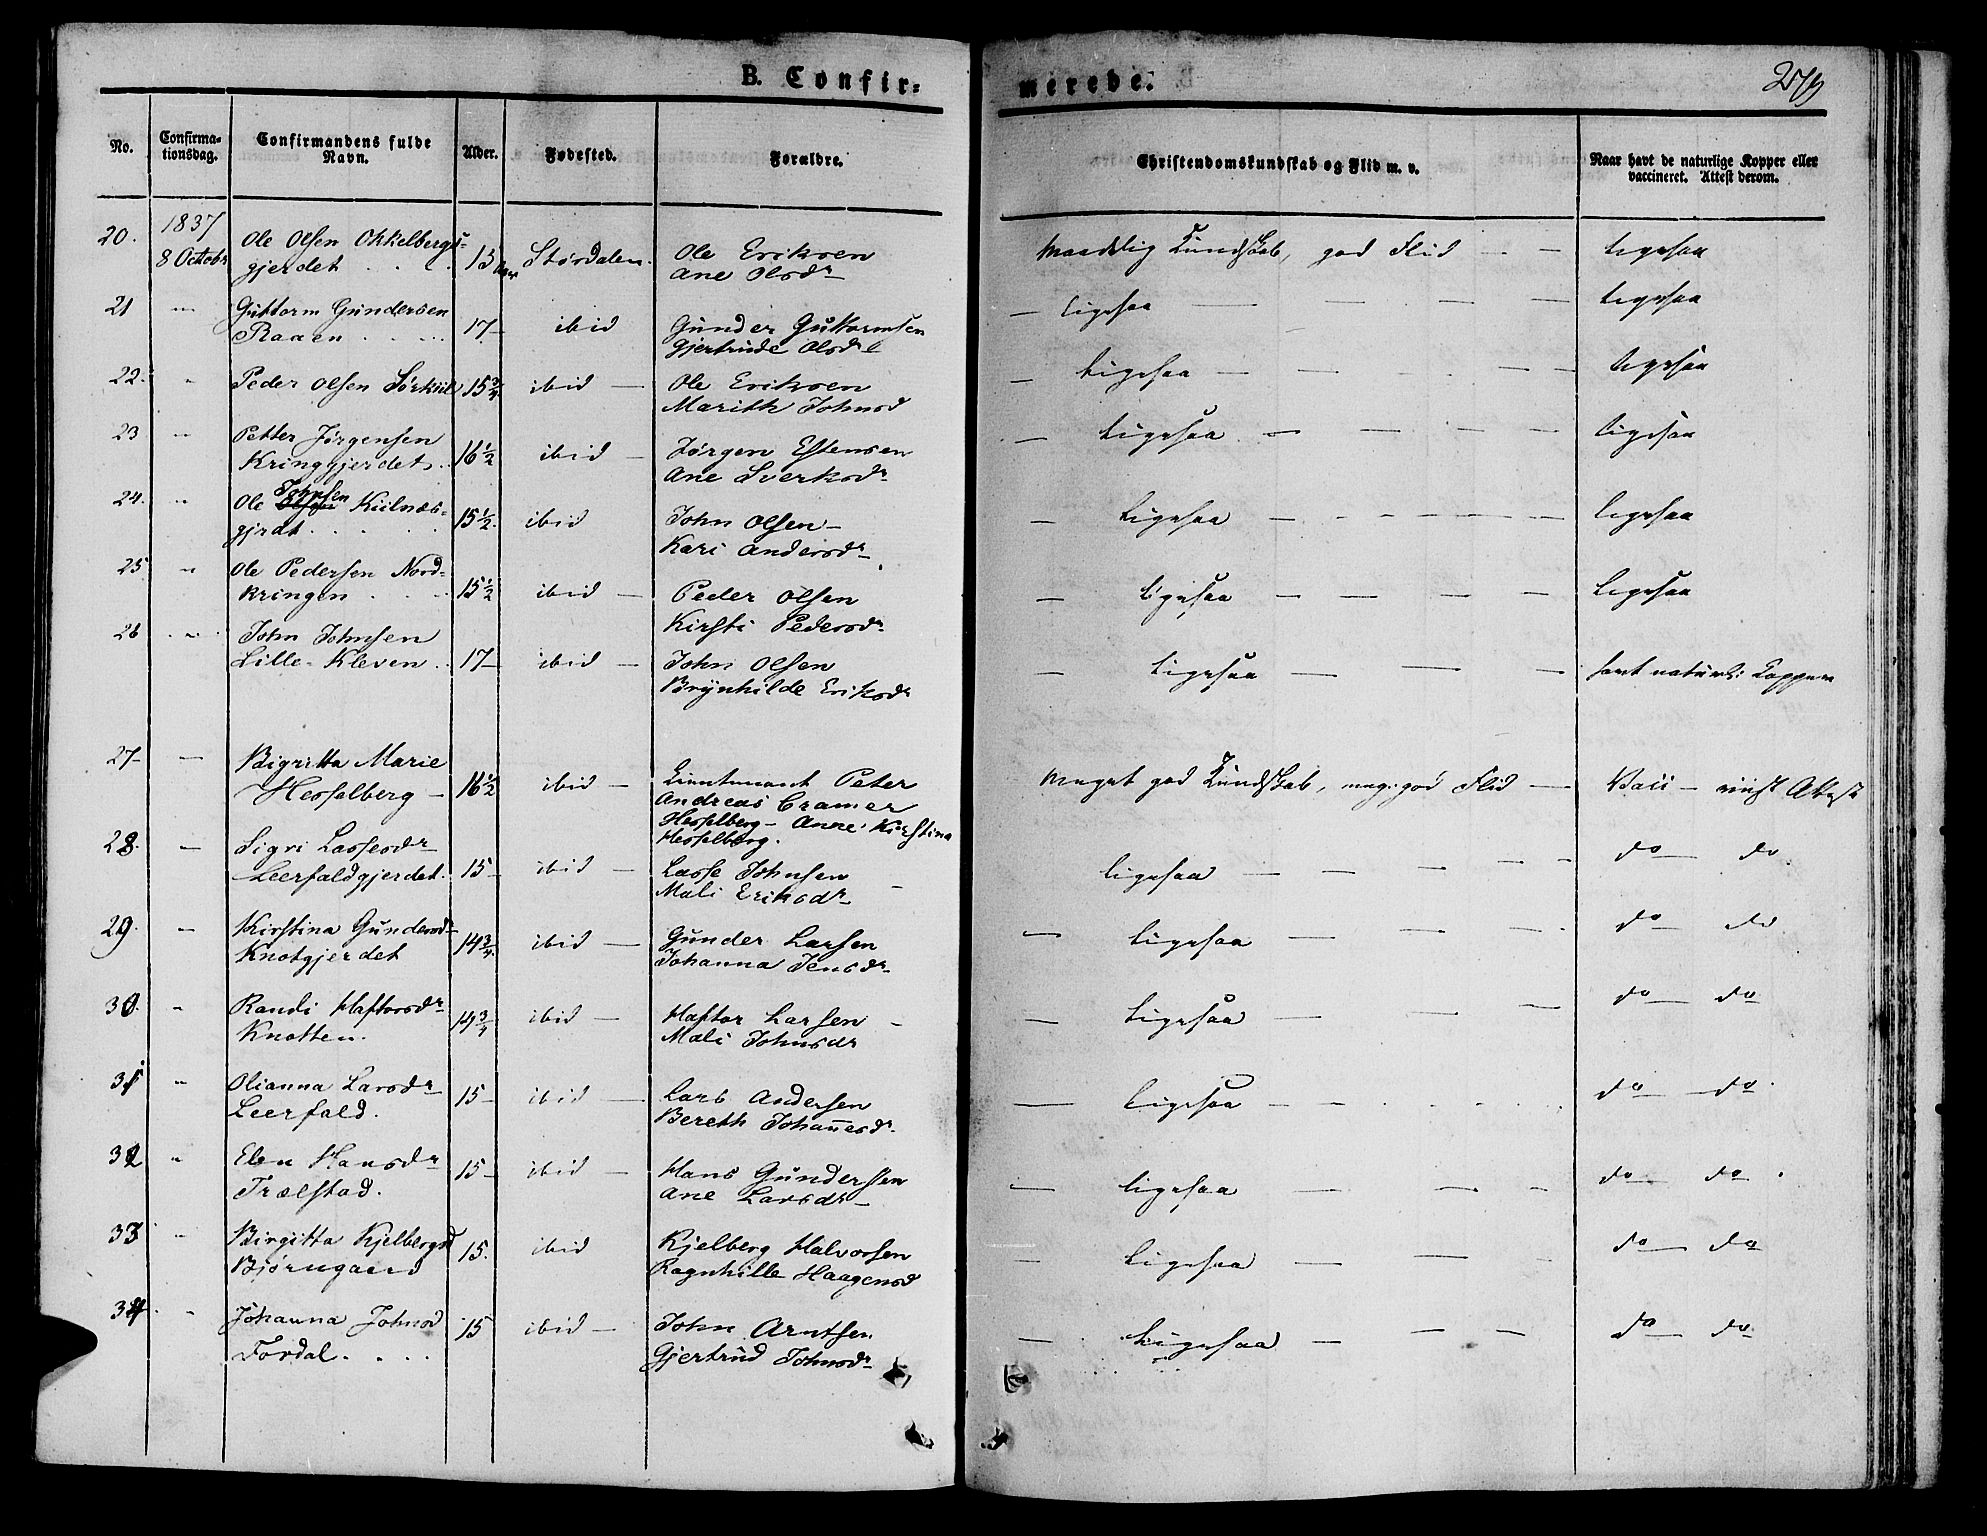 B. Confir=
merede.
No.
Confirma-
tionsdag.
Confirmandens fulde
Navn.
Alder.
Fødested.
Forældre.
Christendomskundskab og Flid m. v.
Naar havt de naturlige Kopper eller
vaccineret. Attest derom.
1837
20. 8 Octobr Ole Olsen Okkelbergs= Ole Eriksen Maadelig Kundskab, god Flid — — ligesaa
gjerdet . . . 15 Aar Størdalen. Ane Olsdr
21 " Guttorm Gundersen Gunder Guttormsen — Ligesaa — — — — ligesaa
Raaen . . . . 17 — ibid Gjertrude Olsdr
22. " Peder Olsen 15 3/4 ibid — Ole Eriksen — Ligesaa — — — — ligesaa
Marith Johnsd
23 " Petter Jørgensen Jørgen Estensen — Ligesaa — — — — ligesaa
Kringgjerdet . . 16 1/2 ibid — Ane Sverksdr
24. " Johnsen
Ole Olsen Kiilnæs= John Olsen — — Ligesaa — — — — ligesaa
gjrdt . . . . 15 1/2. ibid Kari Andersdr
25 " Ole Pedersen Nord= Peder Olsen — Ligesaa — — — — Ligesaa
kringen . . . 15 1/2 ibid — Kirsti Pedersdr
26 " John Johnsen John Olsen — Ligesaa — — — havt naturl: Kopper
Lille-Kleven . . 17 — ibid — Brynhilde Eriksdr
27 — — Bigritta Marie Lieutenant Peter Meget god Kundskab, meg: god Flid — Vacc —
Hesselberg — 16 1/2 ibid — Andreas Cramer
Hesselberg — Anne Kirstina
Hesselberg.
28. — Sigri Lassesdr Lasse Johnsen — ligesaa — — — — do — do.
Leerfaldgjerdet. 15 — ibid — Mali Eriksdr
29. — Kirstina Gundersd Gunder Larsen — Ligesaa — — — — do — do
Knotgjerdet 14 3/4. ibid — Johanna Jensdr
30. " Randi Haftorsdr Haftor Larsen — — Ligesaa — — — do — do
Knotten. 14 3/4 ibid — Mali Johnsdr
31 " Olianna Larsdr Lars Andersen — Ligesaa — — do — do.
Leerfald. 15 — ibid — Bereth Johannesdr.
32 " Elen Hansdr Hans Gundersen — ligesaa — — — do — do
Trælstad. 15 — ibid — Ane Larsdr
33 " Birgitta Kjelbergsd Kjelberg Halvorsen — Ligesaa — — — do — do
Bjørngaard 15. ibid Ragnhille Haagensd
34. " Johanna Johnsd John Arntsen — Ligesaa — — — do — do
Fordal . . . . 15 ibid — Gjertrud Johnsdr